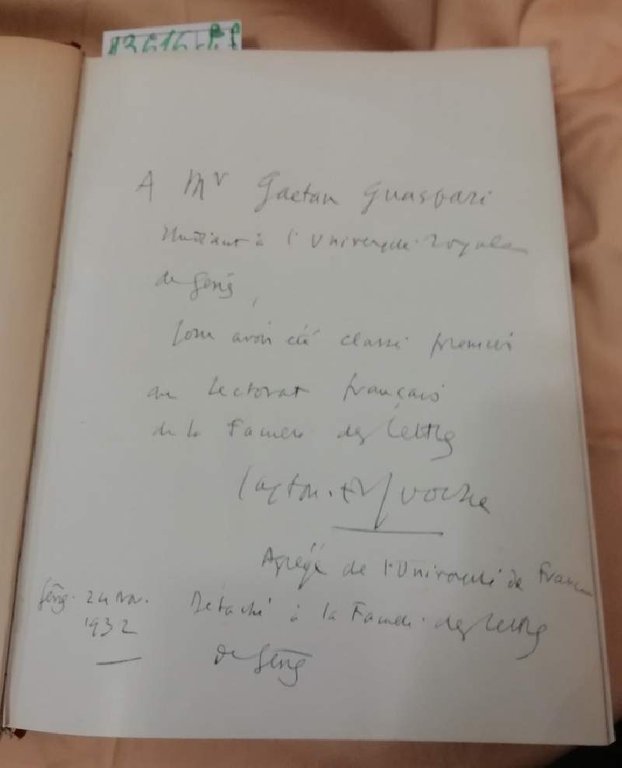 A Mr Gaetan Guaspari
étudiant à l'Université Royale
de Gênes,
pour avoir été classé premier
au Lectorat français
de la Faculté des Lettres
Agrégé de l'Université de France
Gênes. 24 nov. Détaché à la Faculté des Lettres
1932
de Gênes